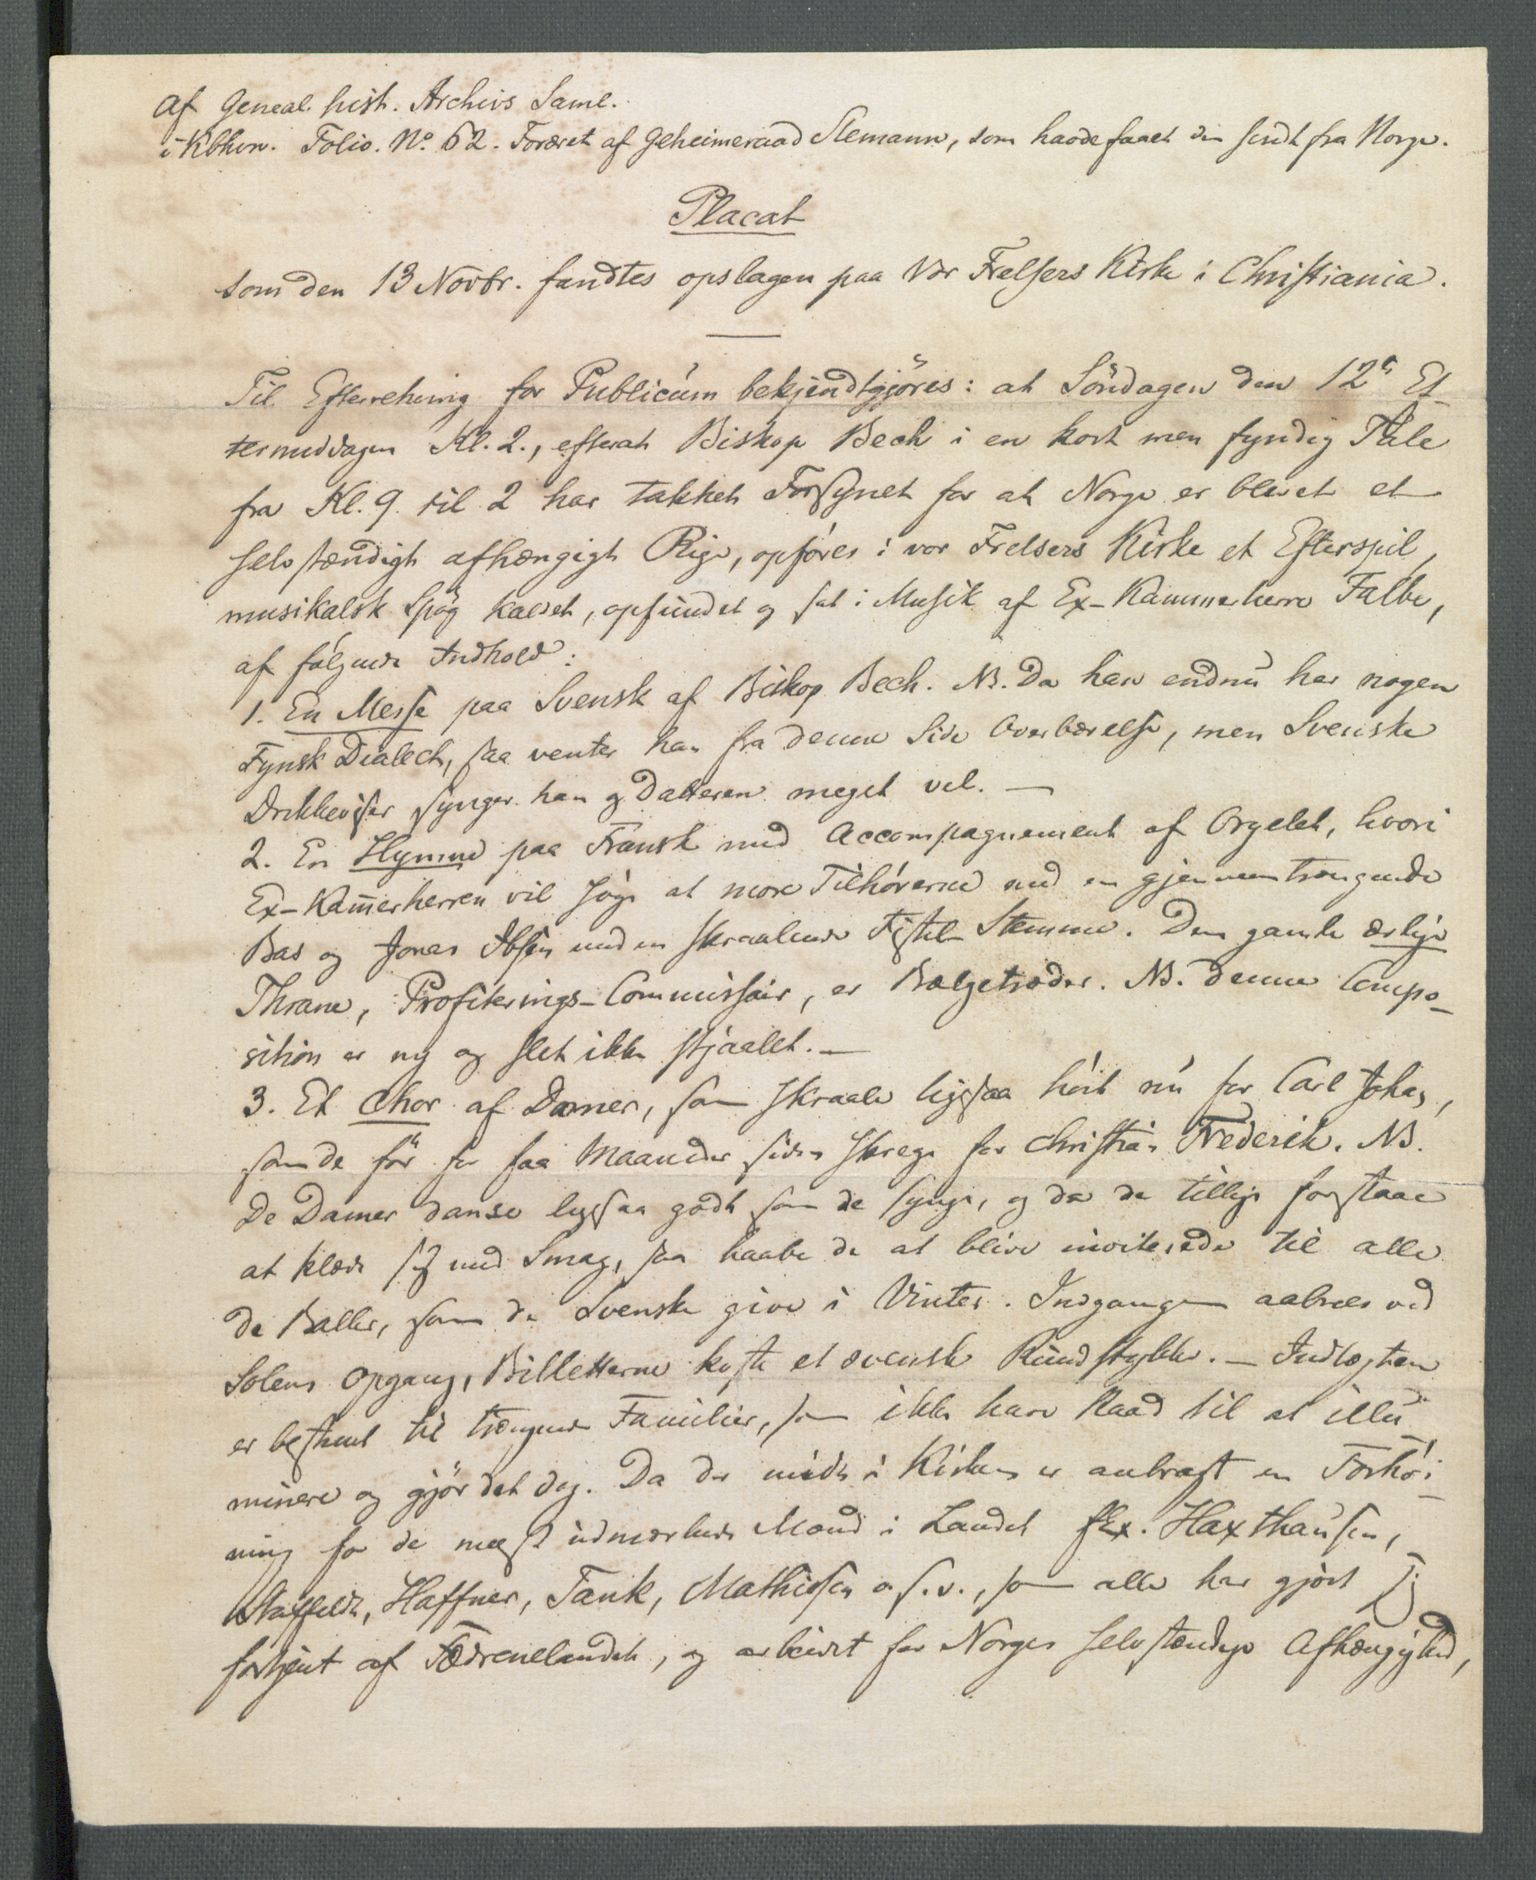 Af Geneal. hist. Archivs Saml.
i Kbhvn. Folio. No. 62. Foræret af Geheimeraad Stemann, som havde faaet den sendt fra Norge.
Placat
som den 13 Novbr. fandtes opslagen paa Vor Frelsers Kirke i Christiania.
Til Efterretning for Publicum bekjendtgjöres: at Söndagen den 12te Ef-
termiddagen Kl. 2., efterat Biskop Bech i en kort men fyndig Tale
fra Kl. 9 til 2 har takket Forsynet for at Norge er blevet et
selvstændigt afhængigt Rige, opföres i vor Frelsers Kirke et Efterspil,
musikalsk Spög kaldet, opfundet og sat i Musik af Ex-Kammerherre Falbe,
af fölgende Indhold:
1. En Messe paa Svensk af Biskop Bech. NB. Da han endnu har nogen
Fynsk Dialect, saa venter han fra denne Side Overbærelse, men Svenske
Drikkeviser synger han og Datteren meget vel. —
2. En Hymne paa Fransk med Accompagnement af Orgelet, hvori
Ex-Kam̅erherren vil söge at more Tilhörerne med en gjennemtrængende
Bas og Jonas Ibsen med en skraalende Fistel Stemme. Den gamle ærlige
Thrane, Profiterings-Commissair, er Bælgetræder. NB. denne Compo-
sition er ny og slet ikke stjaalet. —
3. Et Chor af Damer, som skraale ligesaa höit nu for Carl Johan,
som de för for faa Maaneder siden skrege for Christian Frederik. NB.
De Damer danse ligesaa godt som de synge, og da de tillige forstaae
at klæde sig med Smag, saa haabe de at blive inviterede til alle
de Baller, som de Svenske give i Vinter. Indgangen aabnes ved
Solens Opgang, Billetterne koste et svensk Rundstykke. — Indtægten
er bestemt til trængende Familier, som ikke have Raad til at illu-
minere og gjör det dog. Da der midt i Kirken er anbragt en Forhöi-
ning for de meest udmærkede Mænd i Landet f. Ex. Haxthausen,
Staffeldt, Haffner, Tank, Mathiesen o. s. v., som alle har gjort sig
fortjent af Fædrenelandet, og arbeidet for Norges selvstændige Afhængighed,